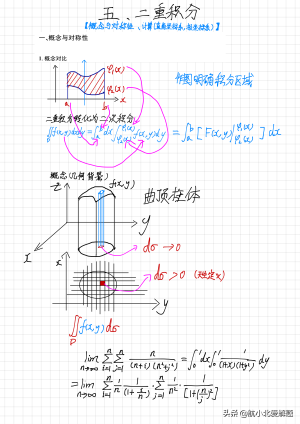 五、二重积分
【概念与对称性、计算(直角坐标系,极坐标系)】
一、概念与对称性
1. 概念对比
φ₁(x)
φ₂(x)
a
b
x
作图明确积分区域
二重积分转化为二次积分
∬f(x,y)dxdy = ∫ₐᵇdx∫f(x,y)dy = ∫ₐᵇ[F(x,y)|]dx
概念(几何背景)
z
f(x,y)
曲顶柱体
y
x
dσ→0
x
dσ>0 (对定义)
y
∬f(x,y)dσ
D
lim n→∞ Σ i=1 n Σ j=1 n n/((n+i)(n²+j²)) = ∫₀¹dx∫₀¹ 1/((1+x)(1+y²)) dy
= lim n→∞ Σ i=1 n 1/n · 1/(1+i/n) · Σ j=1 n 1/n · 1/[1+(j/n)²]
头条 @航小北爱解题